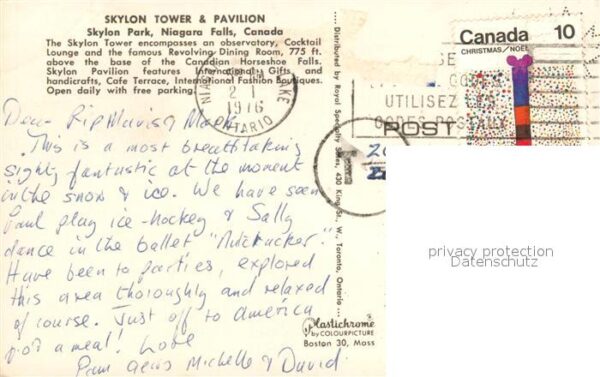 SKYLON TOWER & PAVILION
Skylon Park, Niagara Falls, Canada
The Skylon Tower encompasses an observatory, Cocktail
Lounge and the famous Revolving Dining Room, 775 ft.
above the base of the Canadian Horseshoe Falls.
Skylon Pavilion features International Gifts and
handicrafts, Cafe Terrace, International Fashion Boutiques.
Open daily with free parking.
Dear Rip Mavis & Mark
This is a most breathtaking
sight, fantastic at the moment
in the snow & ice. We have seen
Paul play ice-hockey & Sally
dance in the ballet "Nutcracker".
Have been to parties, explored
this area thoroughly and relaxed
of course. Just off to America
for a meal! Love
Pam Michelle & David
PM
21
1976
ONTARIO
Distributed by Royal Specialty Sales, 430 King St. W., Toronto, Ontario
Plastichrome®
by COLOURPICTURE
Boston 30, Mass
Canada 10
CHRISTMAS/NOËL
UTILISEZ
CODES POSTAUX
POST
T
20
privacy protection
Datenschutz